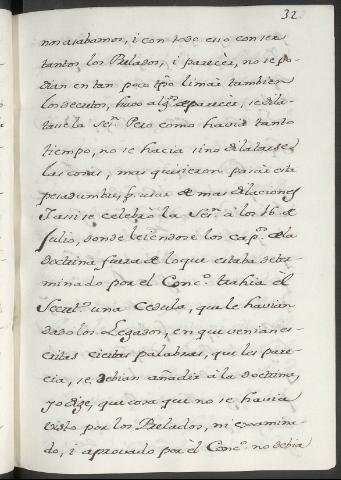 32
nos acabamos, i con todo esso con ser
tantos los Prelados, i pareceres, no se po-
dian en tan poco tpo limar tambien
los decretos, huvo algs. de parecer, se dila-
tase la Sesn. Pero como havia tanto
tiempo, no se hacia sino dilatarse
las cosas, mas quisieron pasar esta
pesadumbre, q. usar de mas dilaciones
I assi se celebrò la Sesn. à los 16. de
Julio, donde leiendose los capos. de la
doctrina fuera de lo que estaba deter-
minado por el Conco. trahia el
Secreto. una Cedula, que le havian
dado los Legados, en que venian es-
critas ciertas palabras, que les pare-
cia, se debian añadir à la doctrina,
yo dixe, que cosa que no se havia
visto por los Prelados, ni examina-
do, i aprovado por el Conco. no debia